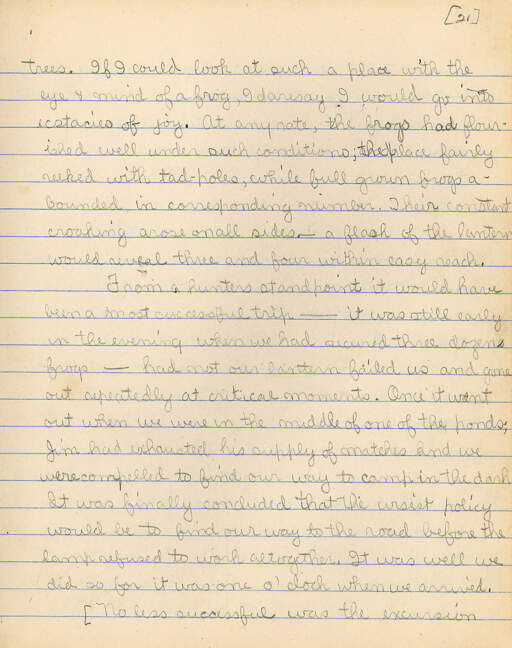 [21]
trees. If I could look at such a place with the
eye & mind of a frog, I daresay I would go into
ecstacies of joy. At any rate, the frogs had flour-
ished well under such conditions; the place fairly
reeked with tad-poles, while full grown frogs a-
bounded in corresponding number. Their constant
croaking arose on all sides — a flash of the lantern
would reveal three and four within easy reach.
From a hunters standpoint it would have
been a most successful trip — it was still early
in the evening when we had secured three dozens
frogs — had not our lantern failed us and gone
out repeatedly at critical moments. Once it went
out when we were in the middle of one of the ponds;
Jim had exhausted his supply of matches and we
were compelled to find our way to camp in the dark
It was finally concluded that the wisest policy
would be to find our way to the road before the
lamp refused to work altogether. It was well we
did so for it was one o'clock when we arrived.
[No less successful was the excursion